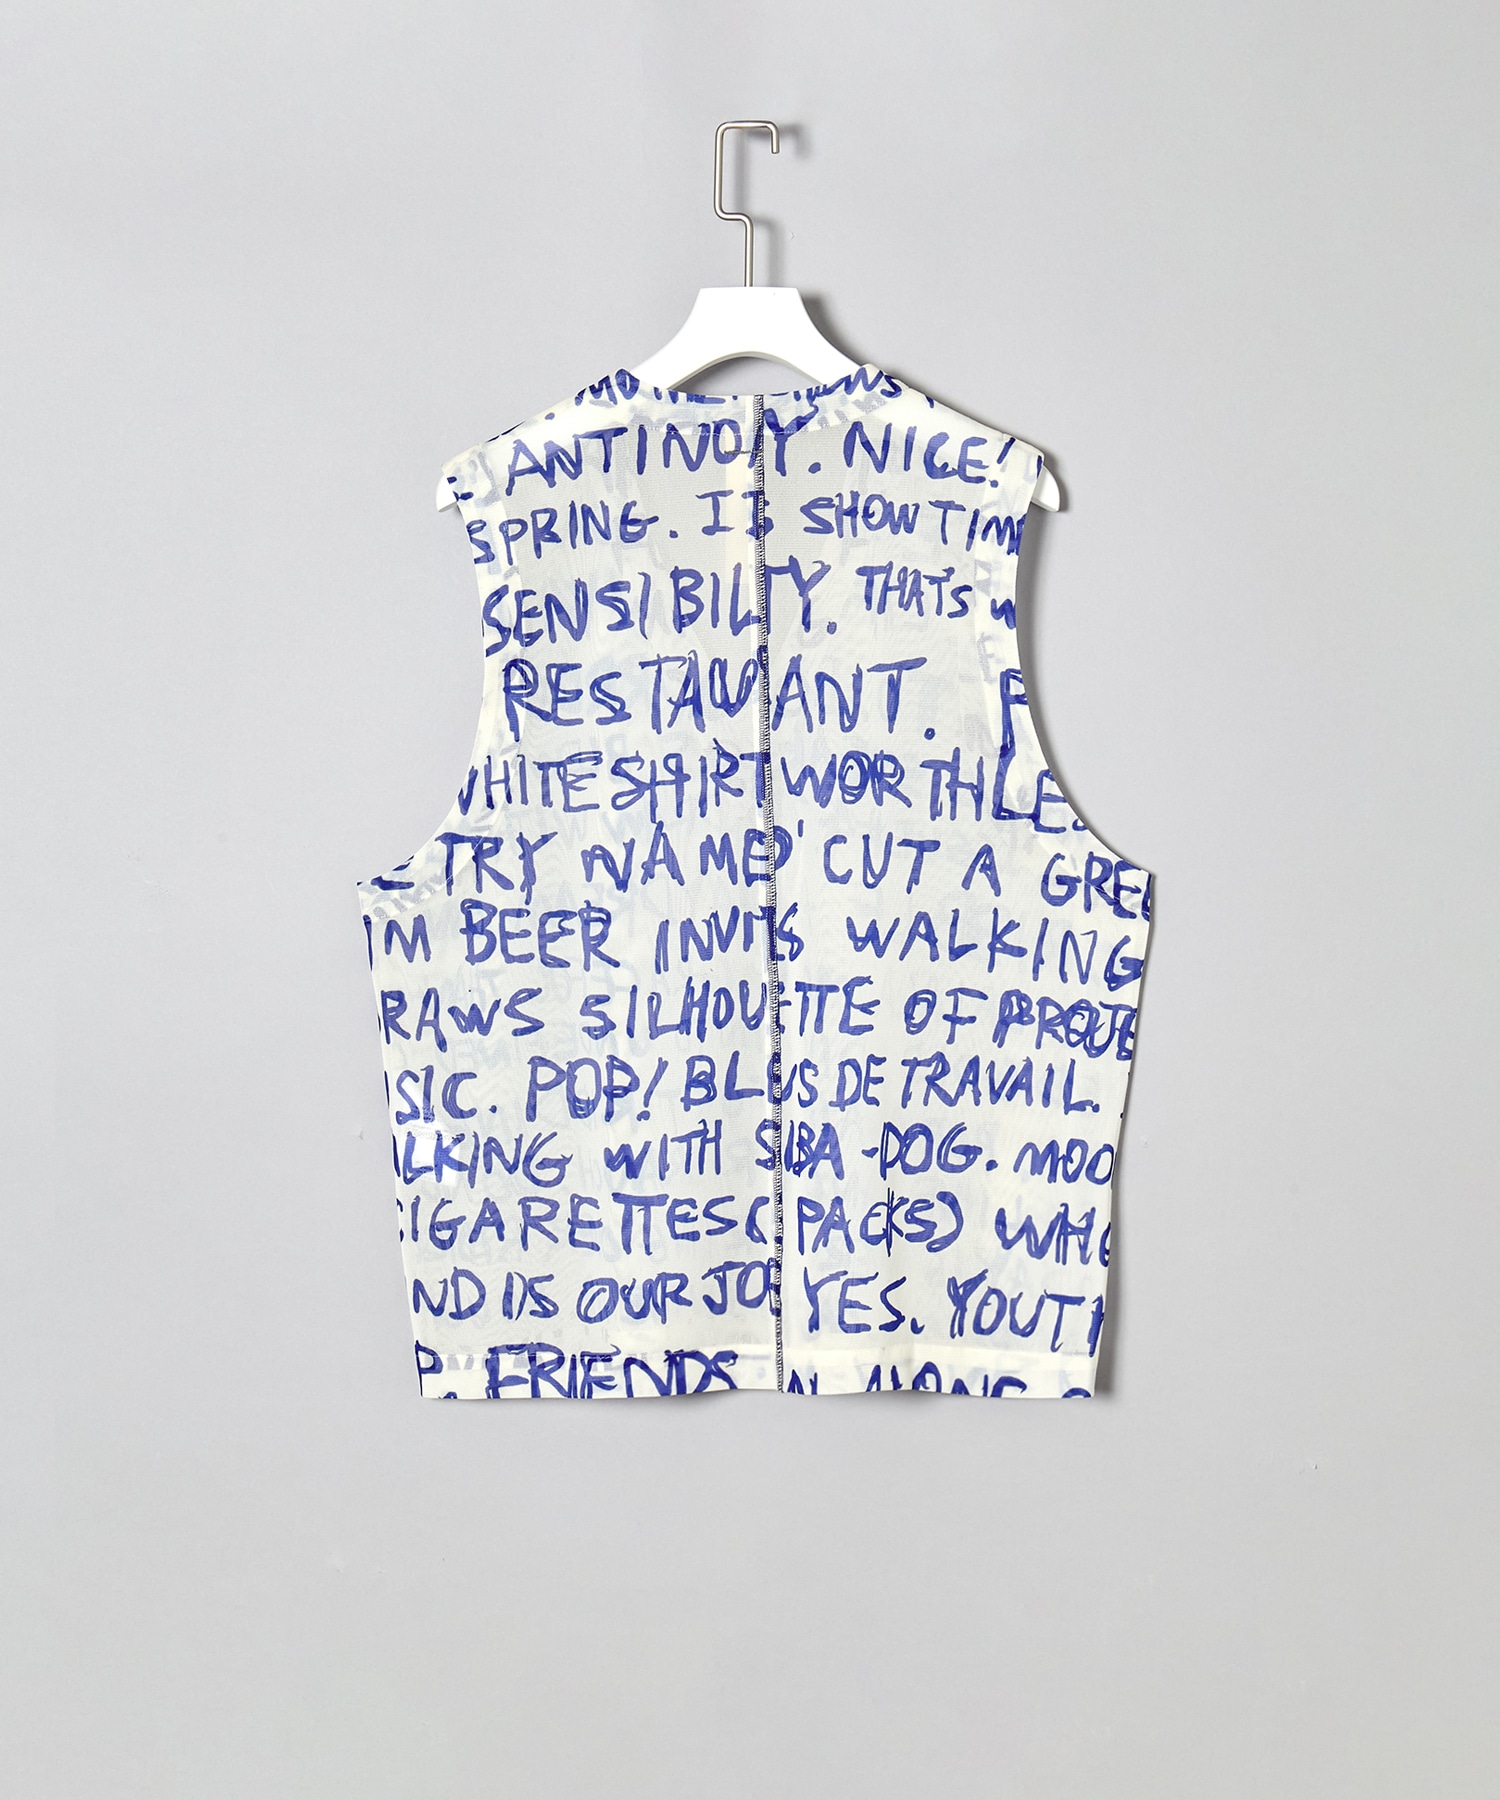 ANTINOY. NICE!
SPRING. IS SHOW TIM
SENSIBILTY. THATS W
RESTAURANT. P
WHITE SHIRT WORTHLES
TRY NAMED' CUT A GREE
IM BEER INVITS WALKING
RAWS SILHOUETTE OF PROJE
SIC. POP! BLUS DE TRAVAIL.
LKING WITH SIBA-DOG. MOO
CIGARETTES (PACKS) WHO
ND IS OUR JOB YES. YOUTH
P. FRIENDS